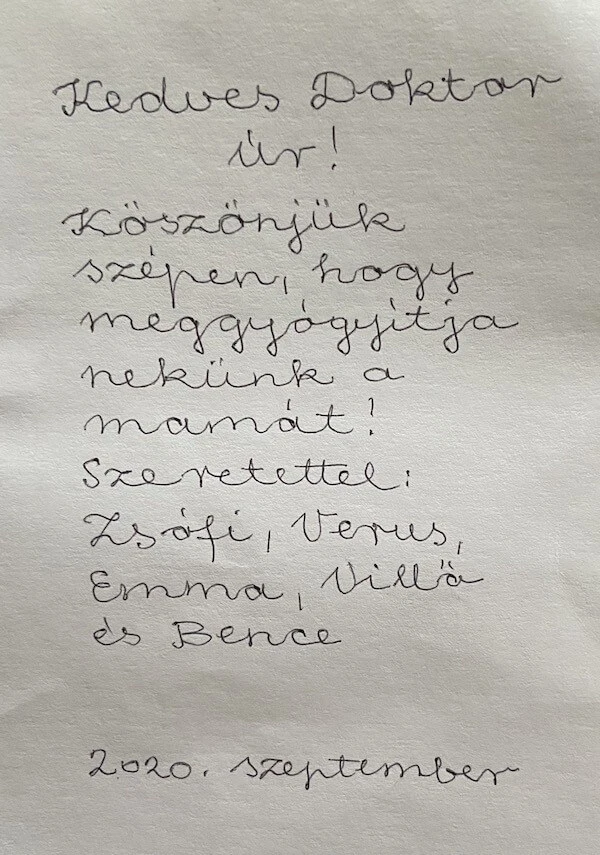 Kedves Doktor
úr!
Köszönjük
szépen, hogy
meggyógyítja
nekünk a
mamát!
Szeretettel:
Zsófi, Verus,
Emma, Villő
és Bence
2020. szeptember